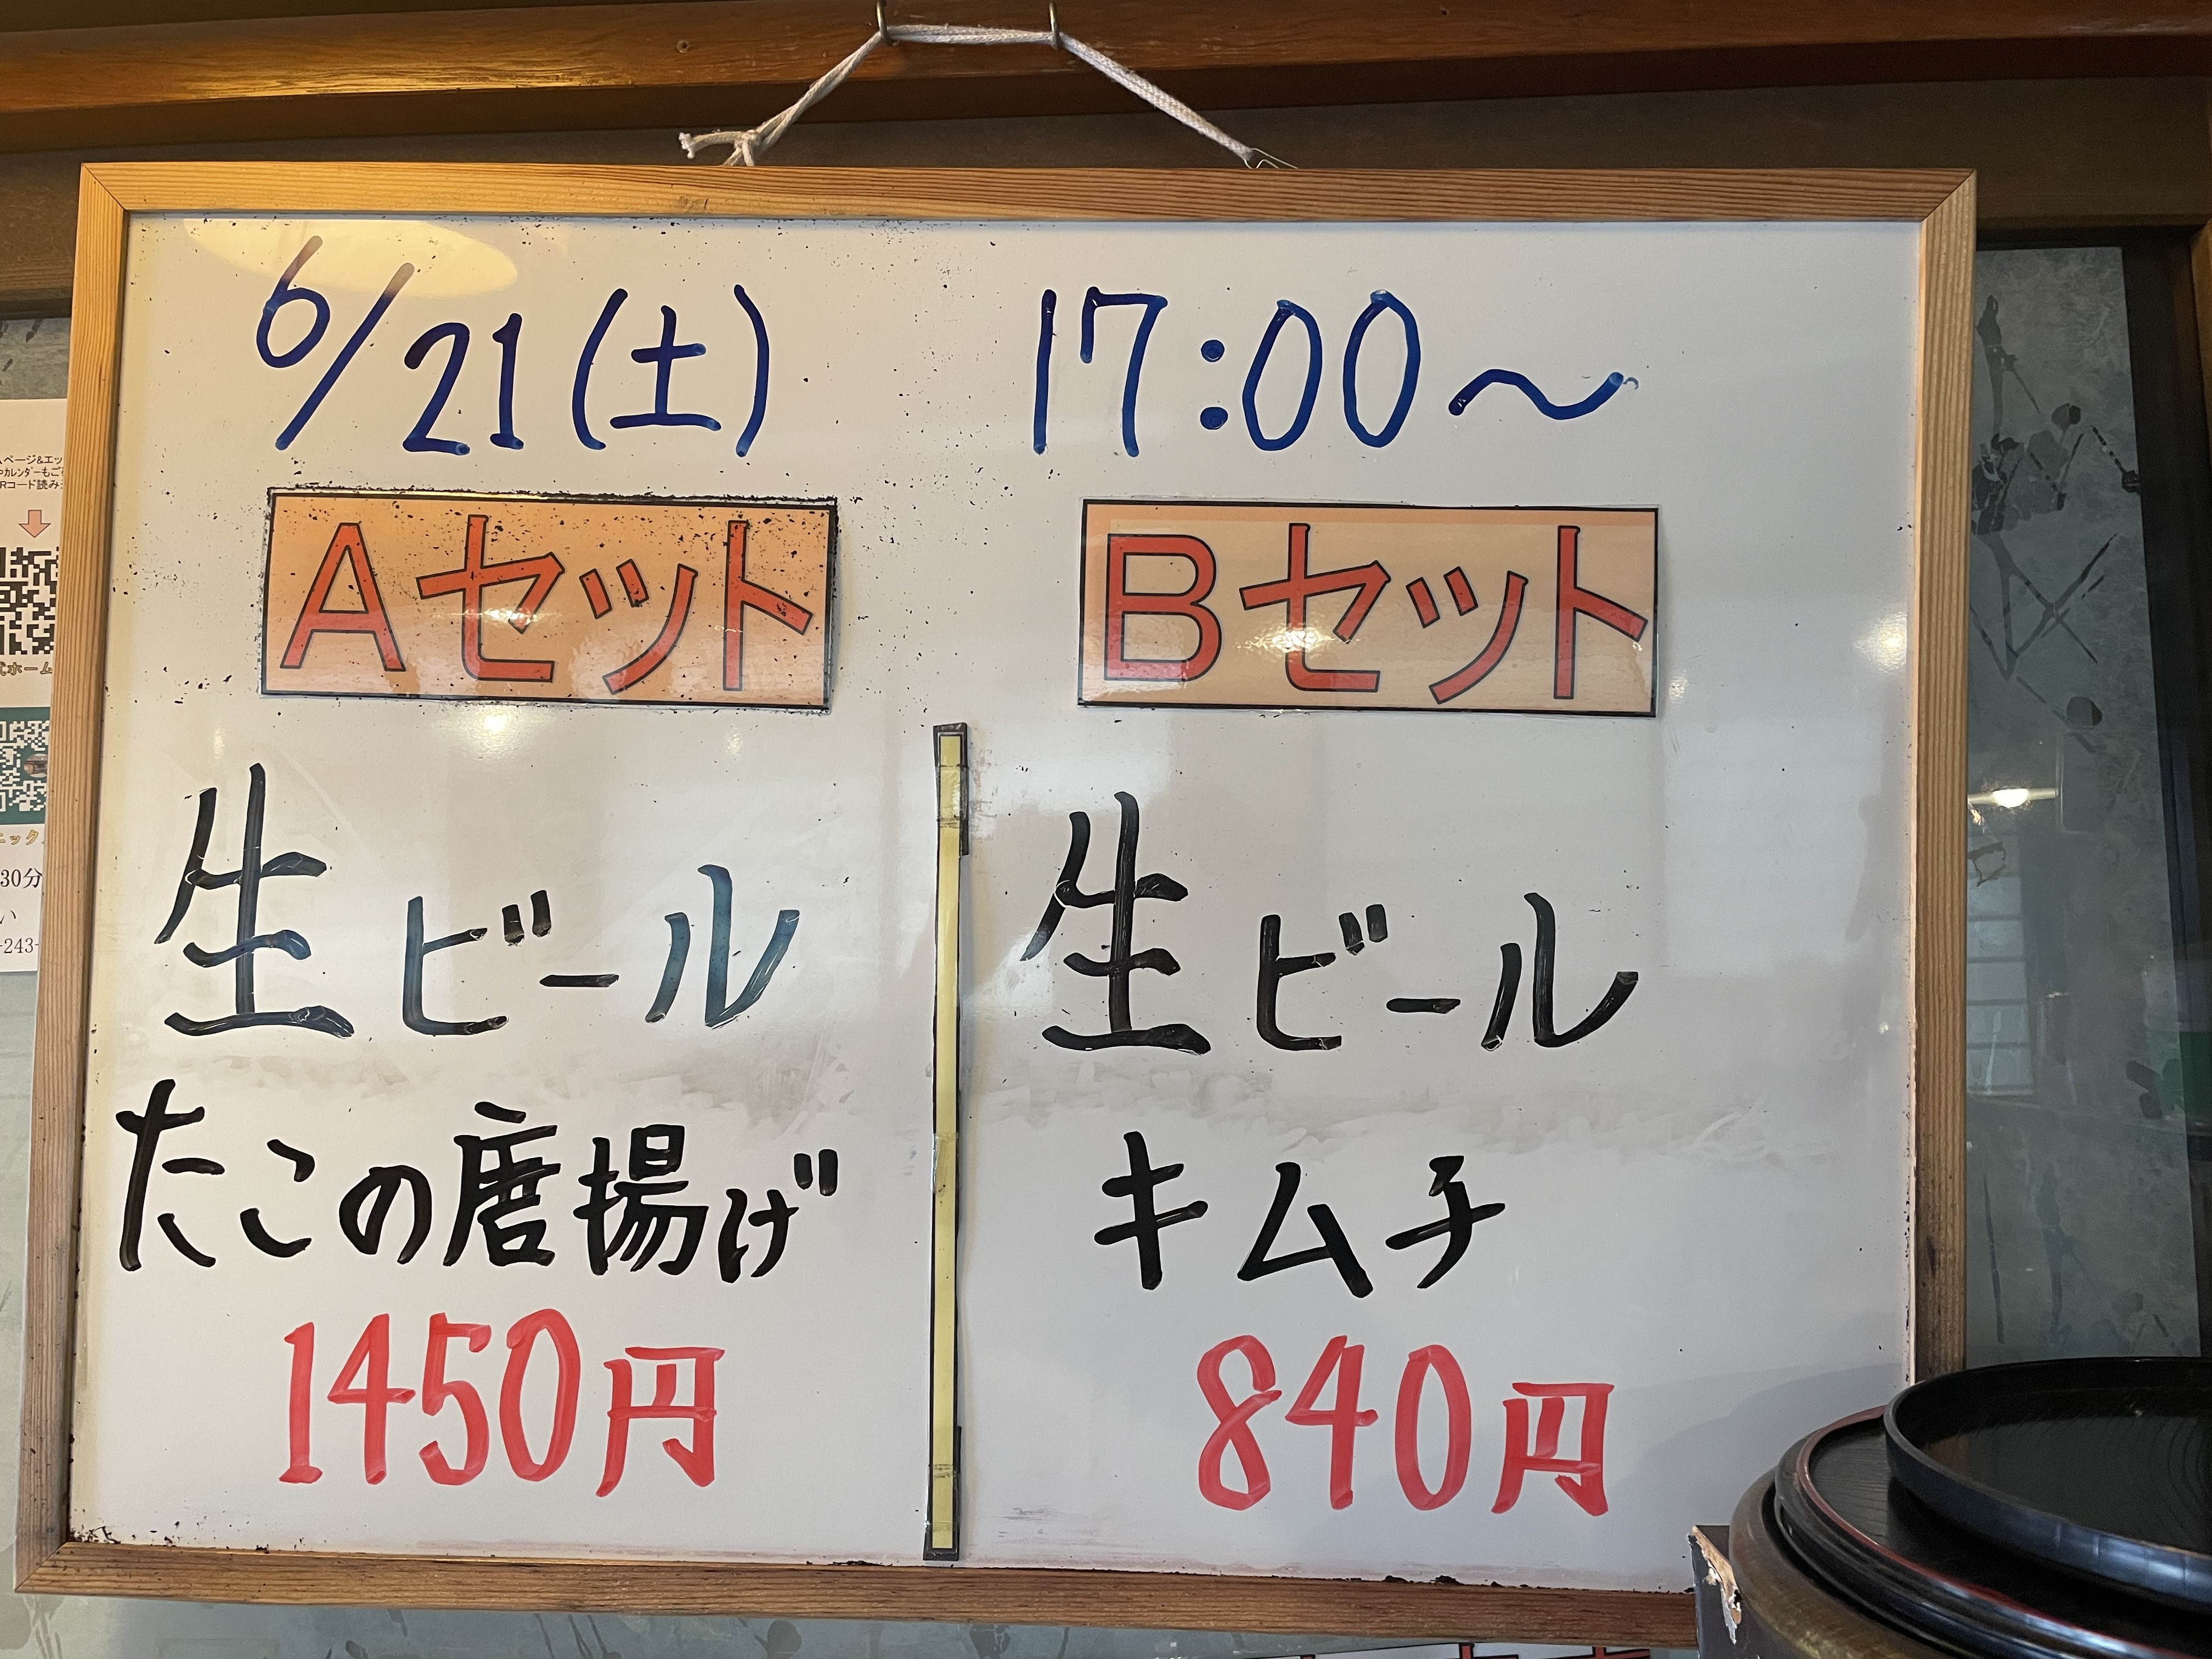 6/21(土) 17:00～
Aセット
Bセット
生ビール
たこの唐揚げ
1450円
生ビール
キムチ
840円
ページ&エッ
カレンダーもご
コード読み
ホーム
ニック
30分
い
-243-